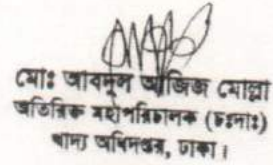 মোঃ আবদুল আজিজ মোল্লা
অতিরিক্ত মহাপরিচালক (চঃদাঃ)
খাদ্য অধিদপ্তর, ঢাকা।